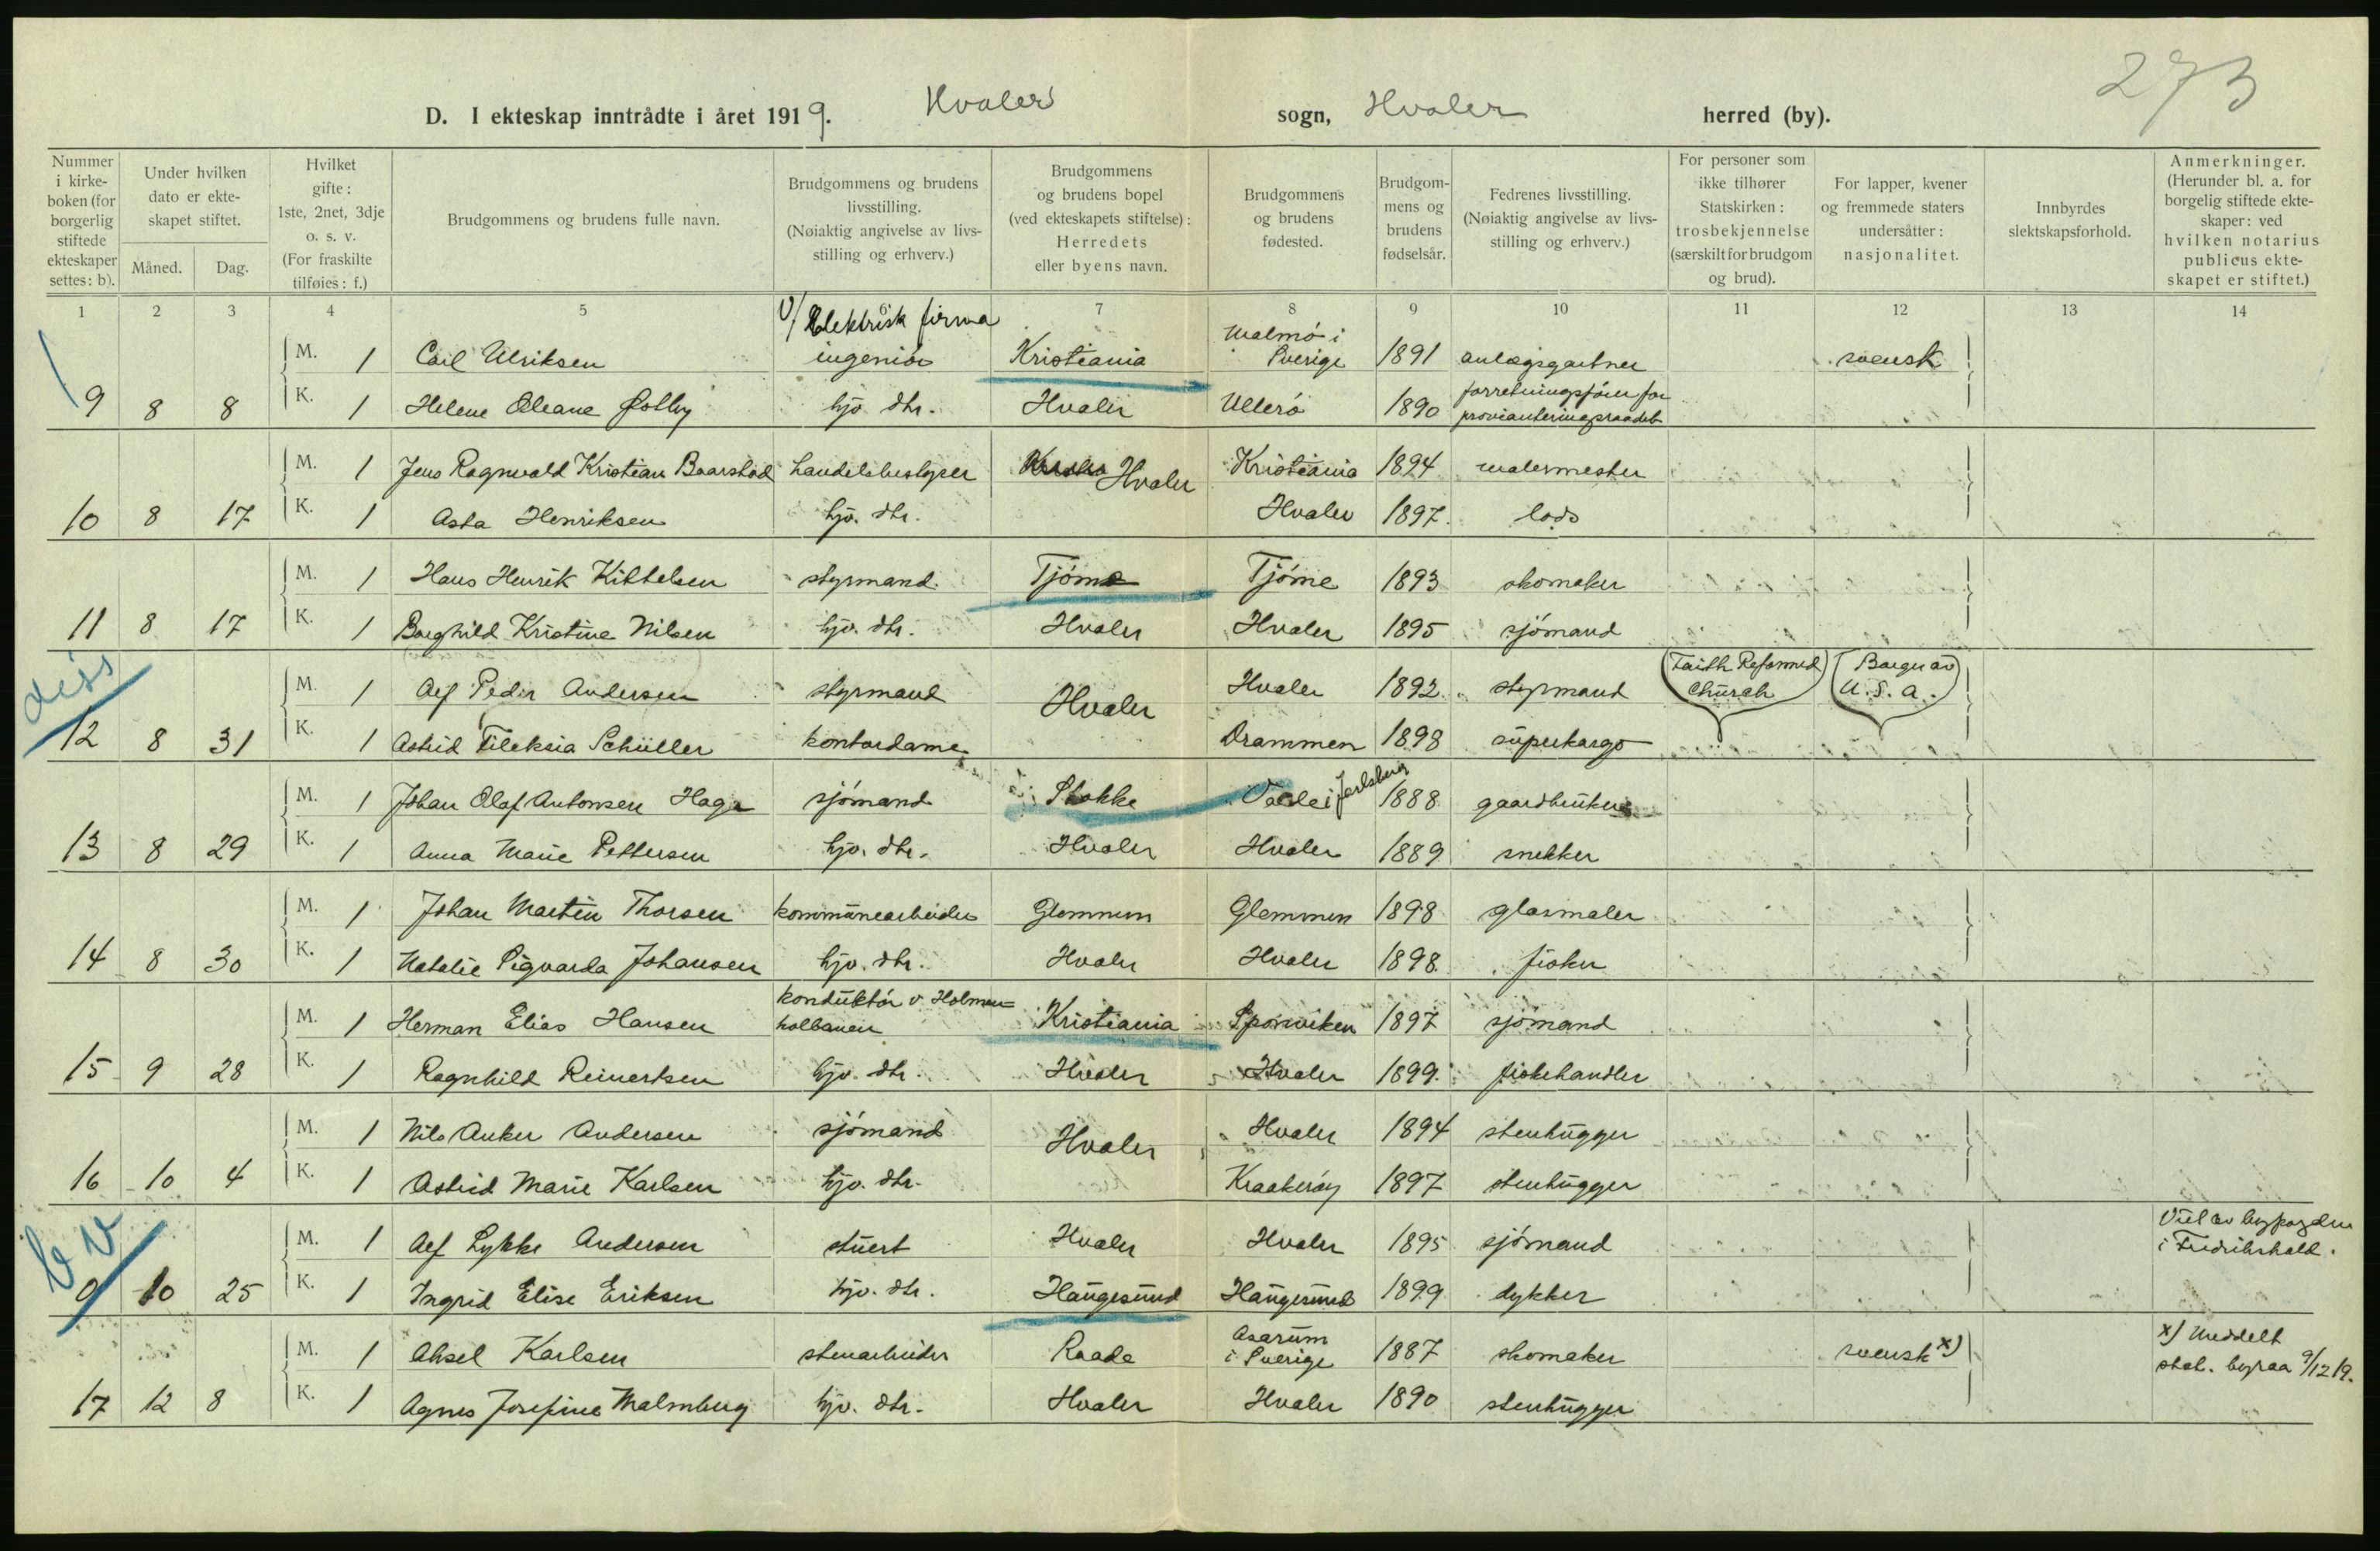 273
D. I ekteskap inntrådte i året 1919. Hvaler sogn, Hvaler herred (by).
Nummer i kirke-boken (for borgerlig stiftede ekteskaper settes: b).
Under hvilken dato er ekte-skapet stiftet.
Måned. Dag.
Hvilket gifte: 1ste, 2net, 3dje o. s. v. (For fraskilte tilføies: f.)
Brudgommens og brudens fulle navn.
Brudgommens og brudens livsstilling. (Nøiaktig angivelse av livs-stilling og erhverv.)
Brudgommens og brudens bopel (ved ekteskapets stiftelse): Herredets eller byens navn.
Brudgommens og brudens fødested.
Brudgom-mens og brudens fødselsår.
Fedrenes livsstilling. (Nøiaktig angivelse av livs-stilling og erhverv.)
For personer som ikke tilhører Statskirken: trosbekjennelse (særskilt for brudgom og brud).
For lapper, kvener og fremmede staters undersåtter: nasjonalitet.
Innbyrdes slektskapsforhold.
Anmerkninger. (Herunder bl. a. for borgelig stiftede ekte-skaper: ved hvilken notarius publicus ekte-skapet er stiftet.)
1 2 3 4 5 6 7 8 9 10 11 12 13 14
v/ Elektrisk firma
M. 1 Carl Ulriksen ingeniør Kristiania Malmø i Sverige 1891 anlægsgartner svensk
9 8 8 K. 1 Helene Oleane Østby hjv. dtr. Hvaler Ullerö 1890 forretningsfører for provianteringsraadet
M. 1 Jens Ragnvald Kristian Baarstad handelsbestyrer Hvaler Kristiania 1894 malermester
10 8 17 K. 1 Asta Henriksen hjv. dtr. Hvaler 1897 lods
M. 1 Hans Henrik Kittelsen styrmand Tjöme Tjöme 1893 skomaker
11 8 17 K. 1 Borghild Kristine Nilsen hjv. dtr. Hvaler Hvaler 1895 sjömand
diss
M. 1 Alf Peder Andersen styrmand Hvaler Hvaler 1892 styrmand Faith Reformed Church Borger av U.S.A.
12 8 31 K. 1 Astrid Schüller kontordame Drammen 1898 superkargo
M. 1 Johan Olaf Antonsen Haga sjömand Stokke Vaale i Jarlsberg 1888 gaardbruker
13 8 29 K. 1 Anna Marie Pettersen hjv. dtr. Hvaler Hvaler 1889 snekker
M. 1 Johan Martin Thorsen kommunearbeider Glemmen Glemmen 1898 glasmaler
14 8 30 K. 1 Natalie Sigvarda Johansen hjv. dtr. Hvaler Hvaler 1898 fisker
M. 1 Herman Elias Hansen konduktör v. Holmen=kolbanen Kristiania Sponviken 1897 sjömand
15 9 28 K. 1 Ragnhild Reinertsen hjv. dtr. Hvaler Hvaler 1899 fiskehandler
M. 1 Nils Anker Andersen sjömand Hvaler Hvaler 1894 stenhugger
16 10 4 K. 1 Astrid Marie Karlsen hjv. dtr. Kraakeröy 1897 stenhugger
b v
M. 1 Alf Lykke Andersen stuert Hvaler Hvaler 1895 sjömand Viet av byfogden i Fredrikshald.
0 10 25 K. 1 Ingrid Elise Eriksen hjv. dtr. Haugesund Haugesund 1899 dykker
M. 1 Aksel Karlsen stenarbeider Raade Asarum i Sverige 1887 skomaker svensk x) x) Meddelt stat. byraa 9/12 19.
17 12 8 K. 1 Agnes Josefine Malmberg hjv. dtr. Hvaler Hvaler 1890 stenhugger